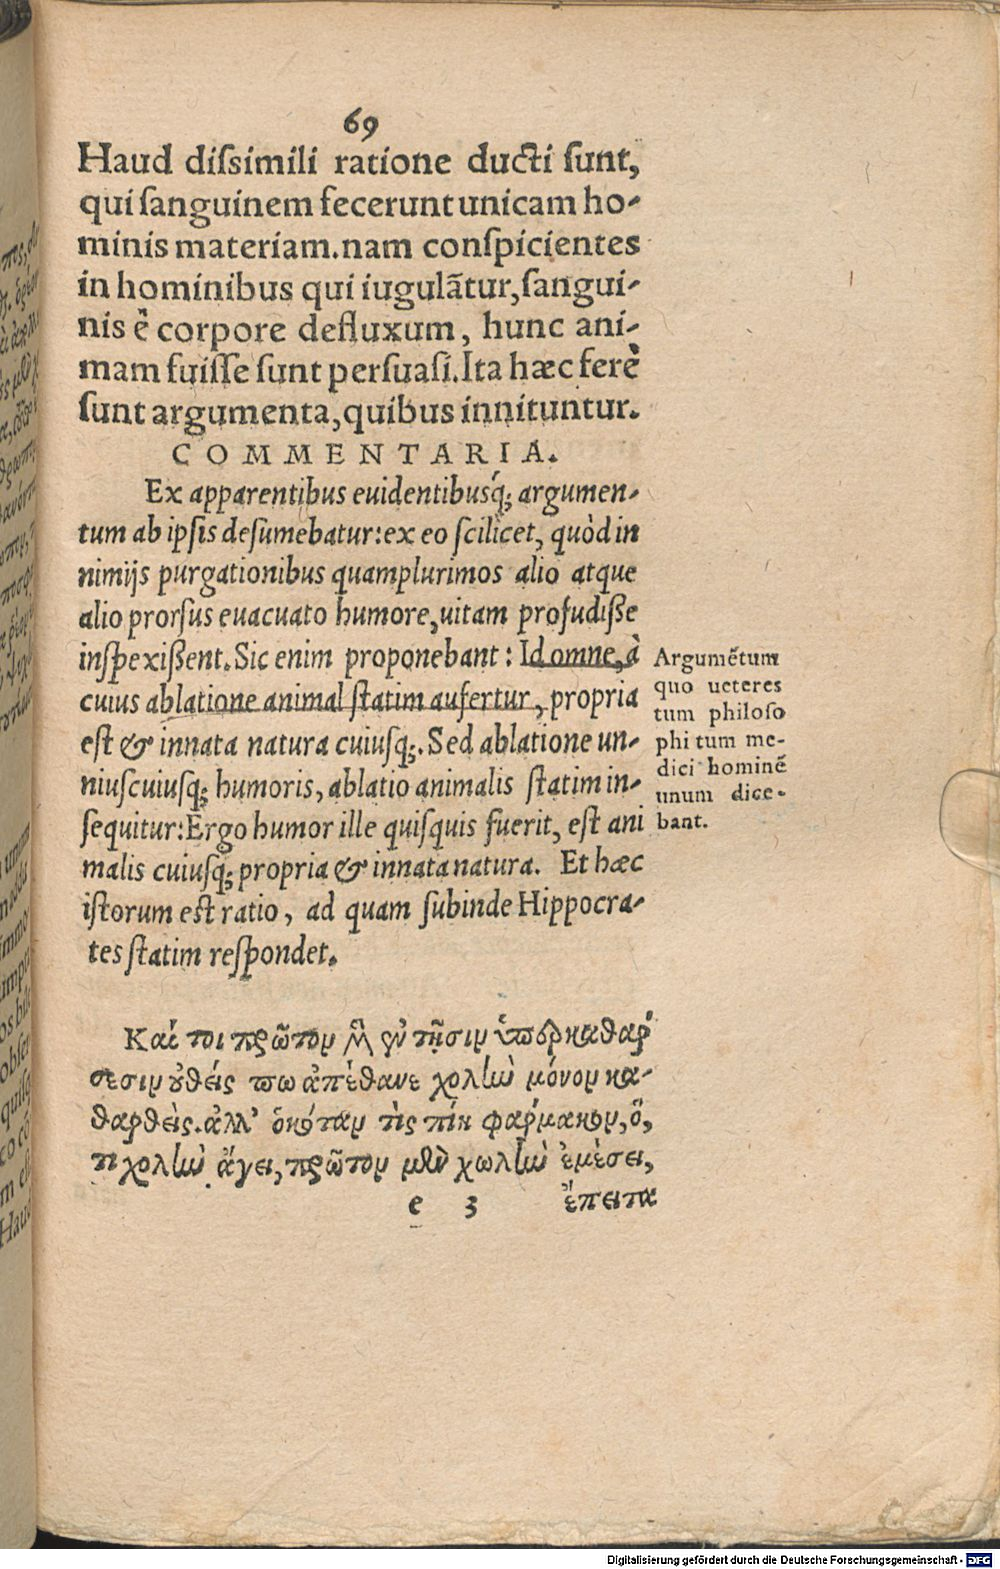 69
Haud dissimili ratione ducti sunt,
qui sanguinem fecerunt unicam ho-
minis materiam. nam conspicientes
in hominibus qui iugulãtur, sangui-
nis è corpore defluxum, hunc ani-
mam fuisse sunt persuasi. Ita hæc ferè
sunt argumenta, quibus innituntur.
COMMENTARIA.
Ex apparentibus euidentibusq́; argumen-
tum ab ipsis desumebatur: ex eo scilicet, quòd in
nimijs purgationibus quamplurimos alio atque
alio prorsus euacuato humore, uitam profudisse
inspexissent. Sic enim proponebant: Id omne, à
cuius ablatione animal statim aufertur, propria
est & innata natura cuiusq;. Sed ablatione un-
niuscuiusq; humoris, ablatio animalis statim in-
sequitur: Ergo humor ille quisquis fuerit, est ani
malis cuiusq; propria & innata natura. Et hæc
istorum est ratio, ad quam subinde Hippocra-
tes statim respondet.
Argumẽtum
quo ueteres
tum philoso
phi tum me-
dici hominẽ
unum dice-
bant.
Καί τοι πρῶτον μὲν ἐν τῇσιν ὑπερκαθάρ
σεσιν οὐθείς πω ἀπέθανε χολὴν μόνον κα-
θαρθείς. ἀλλ' ὁκόταν τὶς πίῃ φάρμακον, ὅ,
τι χολὴν ἄγει, πρῶτον μὲν χωλὴν ἐμέσει,
e 3 ἔπειτα
Digitalisierung gefördert durch die Deutsche Forschungsgemeinschaft - DFG